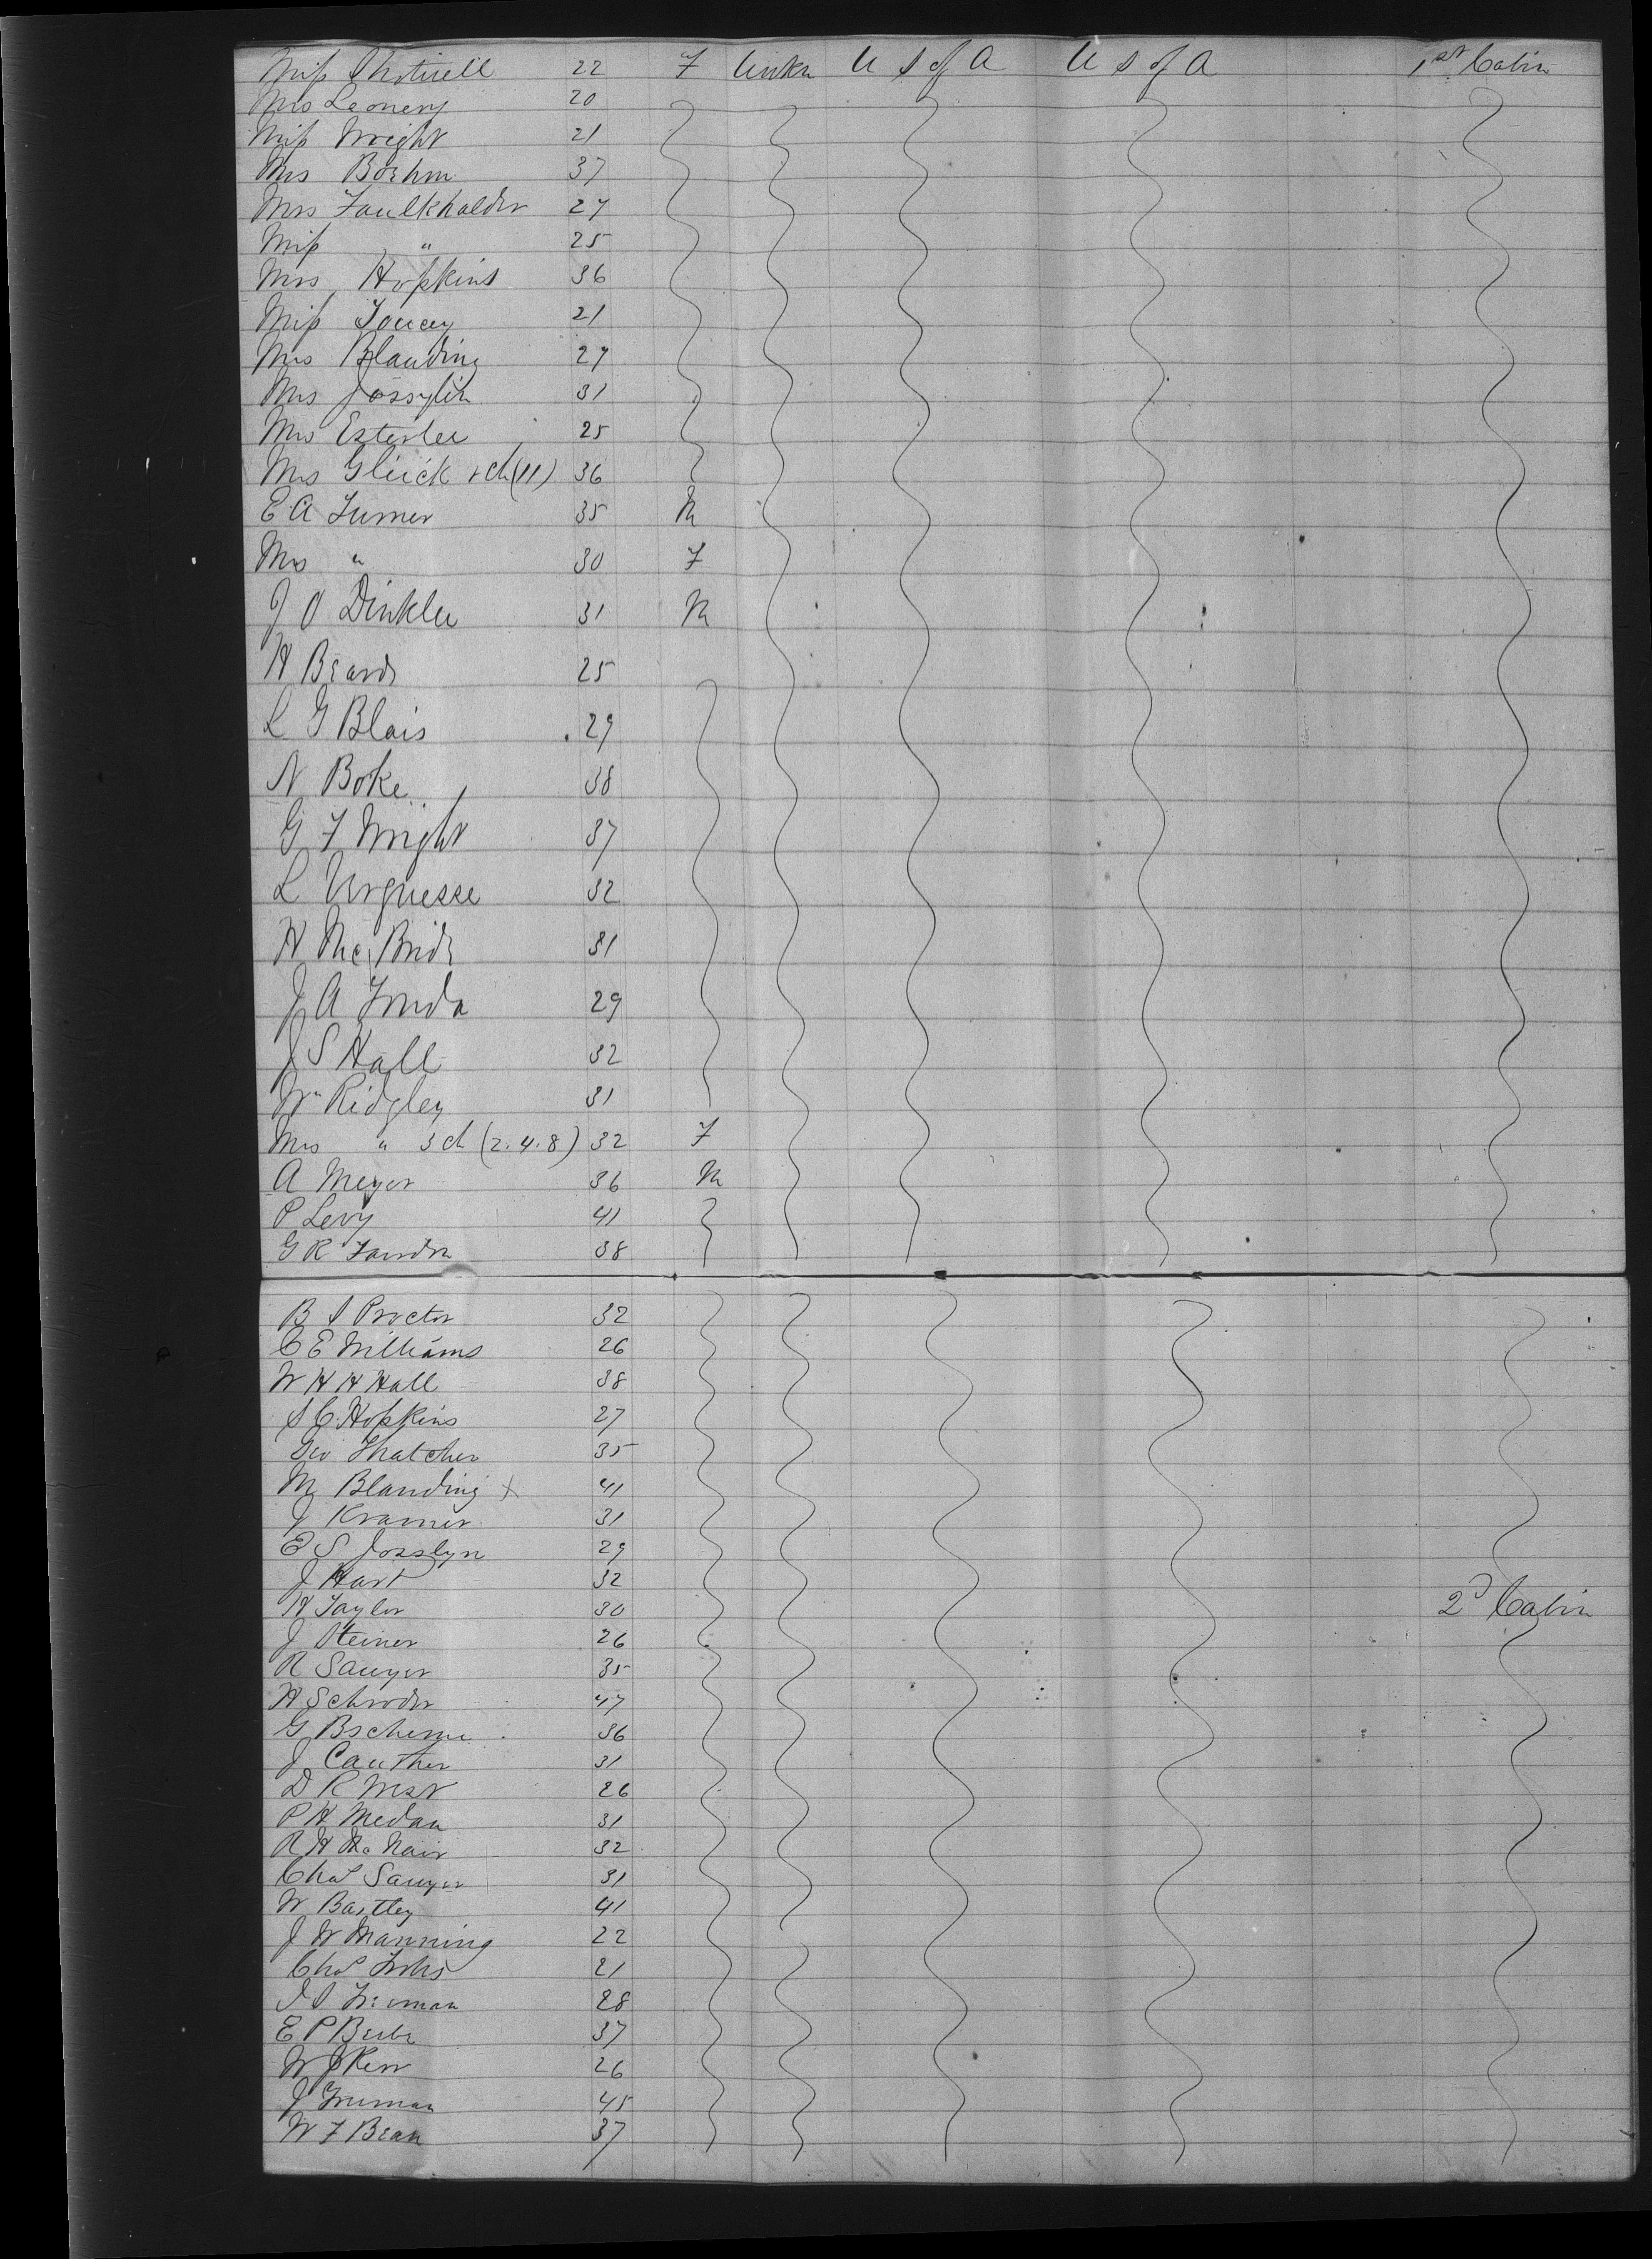 Miss Shotwell 22 F Unkn U S of A U S of A 1st Cabin
Mrs Leonery 20
Miss Wright 21
Mrs Boehm 37
Mrs Faulkhalder 27
Miss " 25
Mrs Hopkins 36
Miss Toucey 21
Mrs Blanding 27
Mrs Josselin 31
Mrs Esterlee 25
Mrs Gluck & ch (11) 36
E A Turner 35 M
Mrs " 30 F
J S Dinklee 31 M
H Beards 25
L G Blais 29
N Boke 38
G F Wright 37
L Verguesse 32
H McBride 31
J A Fonda 29
J S Hall 32
Wm Ridgley 31
Mrs " 3 ch (2.4.8) 32 F
A Meyer 36 M
P Levy 41
G R 38
B S Proctor 32
C E Williams 26
W H H Hall 38
S C Hopkins 27
Geo Thatcher 35
M Blanding x 41
J Kramer 31
E S Josslyn 29
J Hart 32
H Taylor 30 2d Cabin
J Steiner 26
R Sawyer 35
H Schroder 47
G 36
J Cauther 31
D R West 26
P H Medau 31
R H McNair 32
Chas Sawyer 31
W Bartley 41
J W Manning 22
Chas 21
Freeman 28
E P Beebe 37
W J Kerr 26
J Truman 45
W F Bean 37